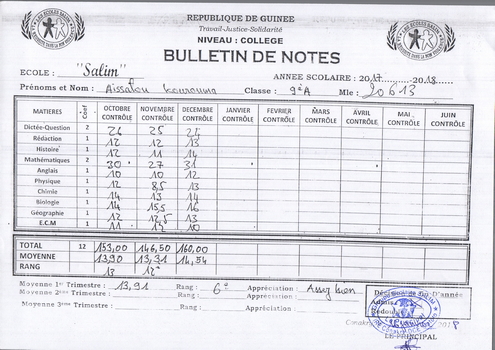 REPUBLIQUE DE GUINEE
Travail-Justice-Solidarité
NIVEAU : COLLEGE
BULLETIN DE NOTES
ECOLE : "Salim" ANNEE SCOLAIRE : 2017 2018
Prénoms et Nom : Aissatou Kourouma Classe : 9e A Mle : 20613
MATIERES Coef OCTOBRE CONTRÔLE NOVEMBRE CONTRÔLE DECEMBRE CONTRÔLE JANVIER CONTRÔLE FEVRIER CONTRÔLE MARS CONTRÔLE AVRIL CONTRÔLE MAI CONTRÔLE JUIN CONTRÔLE
Dictée-Question 2 26 25 24
Rédaction 1 12 12 13
Histoire 1 12 11 14
Mathématiques 2 30 27 31
Anglais 1 10 10 12
Physique 1 12 8,5 13
Chimie 1 14 13 14
Biologie 1 14 15,5 16
Géographie 1 12 12 13
E.C.M 1 11 12,5 10
TOTAL 12 153,00 146,50 160,00
MOYENNE 13,90 13,31 14,54
RANG 13 12e
Moyenne 1er Trimestre : 13,91 Rang : 6e Appréciation : Assez bien
Moyenne 2ème Trimestre : Rang : Appréciation :
Moyenne 3ème Trimestre :
Conakry
LE PRINCIPAL